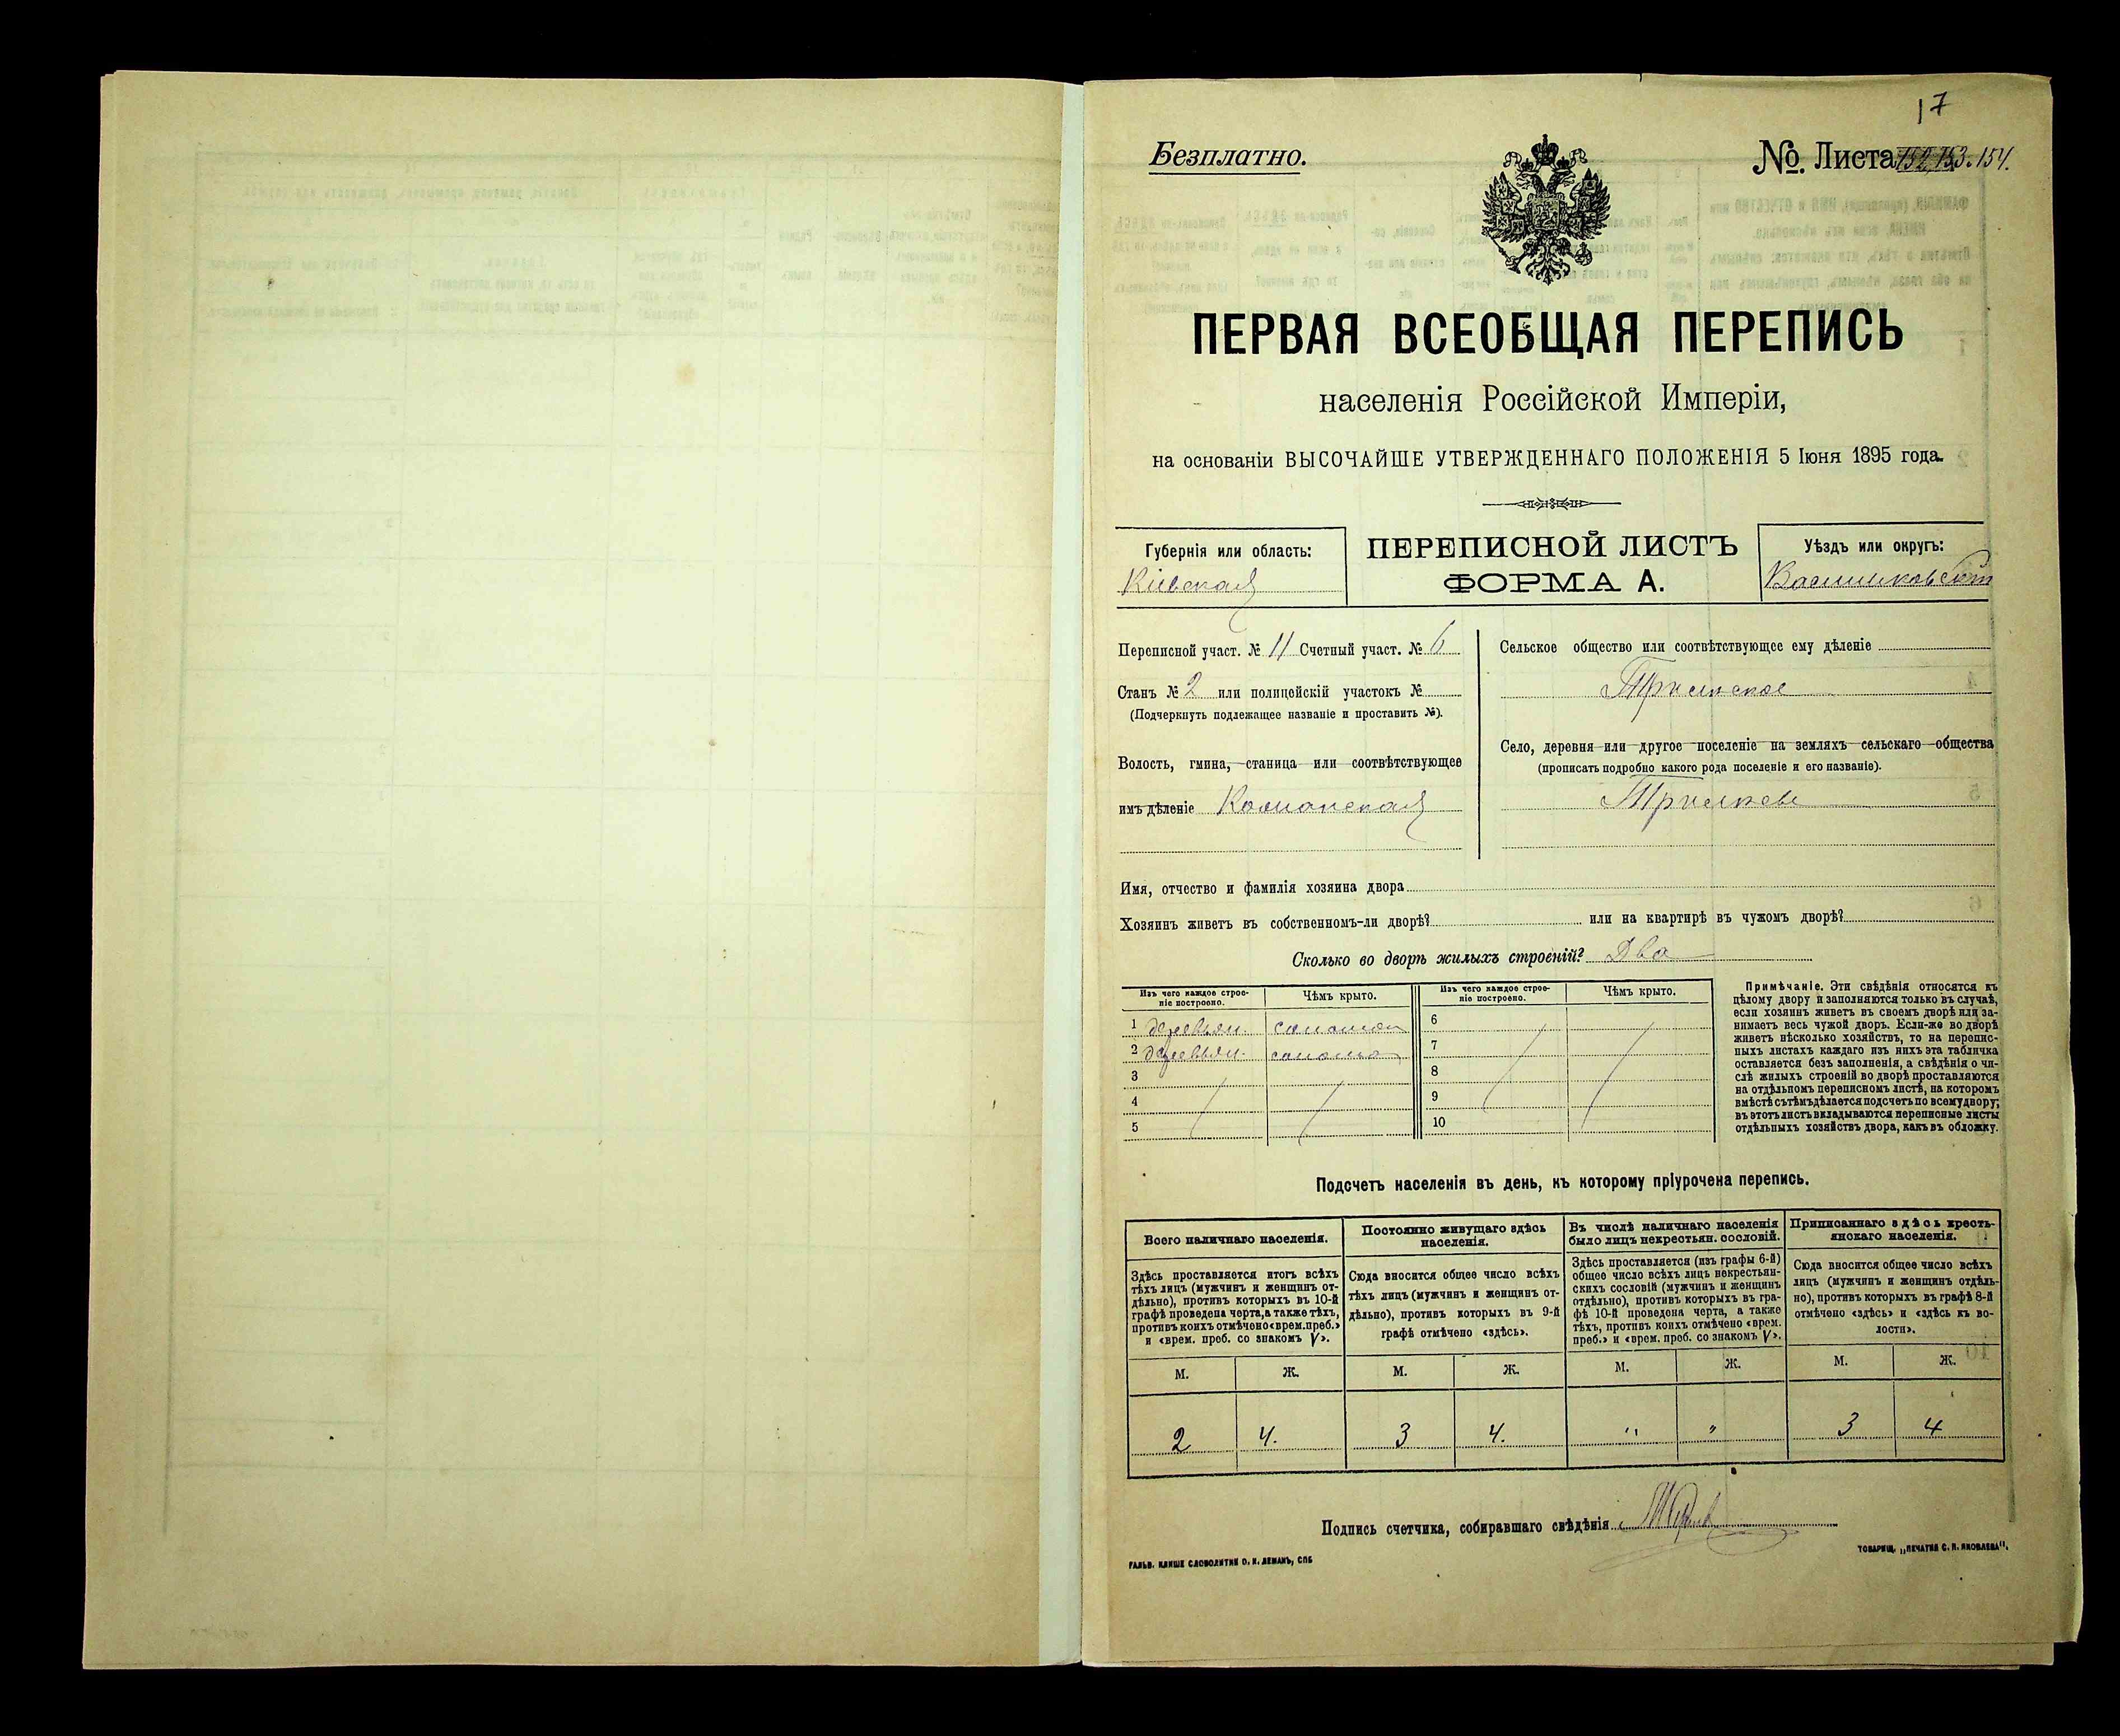 17
Безплатно.
№. Листа 152, 153. 154.
ПЕРВАЯ ВСЕОБЩАЯ ПЕРЕПИСЬ
населенія Россійской Имперіи,
на основаніи ВЫСОЧАЙШЕ УТВЕРЖДЕННАГО ПОЛОЖЕНІЯ 5 Іюня 1895 года.
Губернія или область:
Кіевская
ПЕРЕПИСНОЙ ЛИСТЪ
ФОРМА А.
Уѣздъ или округъ:
Васильковскій
Переписной участ. № 11 Счетный участ. № 6
Станъ № 2 или полицейскій участокъ №
(Подчеркнуть подлежащее названіе и проставить №).
Волость, гмина, станица или соотвѣтствующее
имъ дѣленіе
Сельское общество или соотвѣтствующее ему дѣленіе
Трилѣское
Село, деревня или другое поселеніе на земляхъ сельскаго общества
(прописать подробно какого рода поселеніе и его названіе).
Имя, отчество и фамилія хозяина двора
Хозяинъ живетъ въ собственномъ-ли дворѣ? или на квартирѣ въ чужомъ дворѣ?
Сколько во дворѣ жилыхъ строеній? Два
Изъ чего каждое строе-
ніе построено.
Чѣмъ крыто.
1 деревян. соломой
2 деревян. солома
3
4
5
Изъ чего каждое строе-
ніе построено.
Чѣмъ крыто.
6
7
8
9
10
Примѣчаніе. Эти свѣдѣнія относятся къ
цѣлому двору и заполняются только въ случаѣ,
если хозяинъ живетъ въ своемъ дворѣ или за-
нимаетъ весь чужой дворъ. Если-же во дворѣ
живетъ нѣсколько хозяйствъ, то на перепис-
ныхъ листахъ каждаго изъ нихъ эта табличка
оставляется безъ заполненія, а свѣдѣнія о чи-
слѣ жилыхъ строеній во дворѣ проставляются
на отдѣльномъ переписномъ листѣ, на которомъ
вмѣстѣ съ тѣмъ дѣлается подсчетъ по всему двору;
въ этотъ листъ вкладываются переписные листы
отдѣльныхъ хозяйствъ двора, какъ въ обложку.
Подсчетъ населенія въ день, къ которому пріурочена перепись.
Всего наличнаго населенія.
Здѣсь проставляется итогъ всѣхъ
тѣхъ лицъ (мужчинъ и женщинъ от-
дѣльно), противъ которыхъ въ 10-й
графѣ проведена черта, а также тѣхъ,
противъ коихъ отмѣчено «врем. преб.»
и «врем. преб. со знакомъ V».
М. Ж.
2 4.
Постоянно живущаго здѣсь
населенія.
Сюда вносится общее число всѣхъ
тѣхъ лицъ (мужчинъ и женщинъ от-
дѣльно), противъ которыхъ въ 9-й
графѣ отмѣчено «здѣсь».
М. Ж.
3 4.
Въ числѣ наличнаго населенія
было лицъ некрестьян. сословій.
Здѣсь проставляется (изъ графы 6-й)
общее число всѣхъ лицъ некрестьян-
скихъ сословій (мужчинъ и женщинъ
отдѣльно), противъ которыхъ въ гра-
фѣ 10-й проведена черта, а также
тѣхъ, противъ коихъ отмѣчено «врем.
преб.» и «врем. преб. со знакомъ V».
М. Ж.
" "
Приписаннаго здѣсь кресть-
янскаго населенія.
Сюда вносится общее число всѣхъ
лицъ (мужчинъ и женщинъ отдѣль-
но), противъ которыхъ въ графѣ 8-й
отмѣчено «здѣсь» и «здѣсь къ во-
лости».
М. Ж.
3 4
Подпись счетчика, собиравшаго свѣдѣнія
ГАЛЬВ. КЛИШЕ СЛОВОЛИТНИ О. И. ЛЕМАНЪ, СПБ
ТОВАРИЩ. „ПЕЧАТНЯ С. П. ЯКОВЛЕВА".